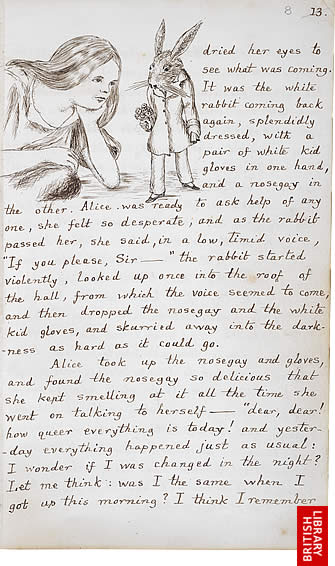 8 13.
dried her eyes to
see what was coming.
It was the white
rabbit coming back
again, splendidly
dressed, with a
pair of white kid
gloves in one hand,
and a nosegay in
the other. Alice was ready to ask help of any
one, she felt so desperate, and as the rabbit
passed her, she said, in a low, timid voice,
"If you please, Sir—" the rabbit started
violently, looked up once into the roof of
the hall, from which the voice seemed to come,
and then dropped the nosegay and the white
kid gloves, and skurried away into the dark-
-ness as hard as it could go.
Alice took up the nosegay and gloves,
and found the nosegay so delicious that
she kept smelling at it all the time she
went on talking to herself— "dear, dear!
how queer everything is today! and yester-
-day everything happened just as usual:
I wonder if I was changed in the night?
Let me think: was I the same when I
got up this morning? I think I remember
BRITISH
LIBRARY